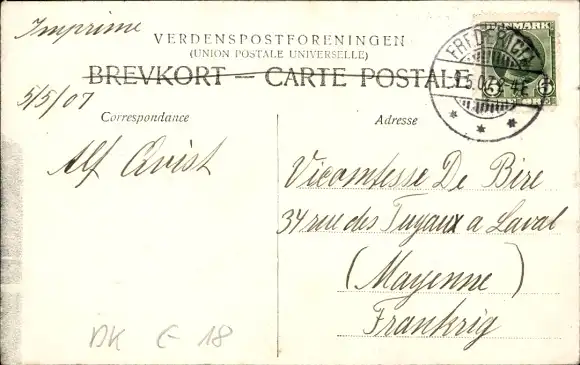 Imprime
VERDENSPOSTFORENINGEN
(UNION POSTALE UNIVERSELLE)
BREVKORT — CARTE POSTALE
5/5/07
Correspondance
Adresse
Alf Qvist
Vicomtesse De Bire
34 rue des Tuyaux a Laval
(Mayenne)
Frankrig
DK E-18
FREDERICIA
DANMARK
5 5
ØRE